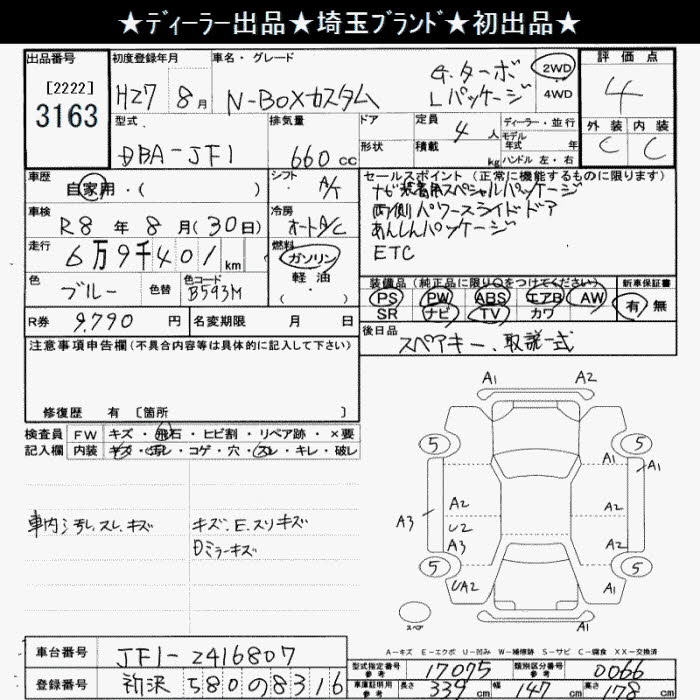 ★ディーラー出品★埼玉ブランド★初出品★
出品番号 初度登録年月 車名・グレード 評価点
[2222]
3163
H27 8月 N-BOXカスタム G.ターボ Lパッケージ 2WD 4WD 4
型式 排気量 ドア 定員 ディーラー・並行 外装 内装
DBA-JF1 660cc 形状 4人 積載 kg モデル年式 年 ハンドル 左・右 C C
車歴 自家用・( ) シフト A/T
セールスポイント (正常に機能するものに限ります)
ナビ装着用スペシャルパッケージ
両側パワースライドドア
あんしんパッケージ
ETC
車検 R8年8月(30日) 冷房 オートA/C
走行 6万9千401km 燃料 ガソリン 軽油 ( ・ )
色 ブルー 色替 色コード B593M
装備品 (純正品に限り○をつけてください) 新車保証書
PS PW ABS エアB AW 有・無
SR ナビ TV カワ
R券 9,790円 名変期限 月 日
後日品 スペアキー、取説一式
注意事項申告欄(不具合内容等は具体的に記入して下さい)
修復歴 有 [箇所 ]
検査員 FW キズ・飛石・ヒビ割・リペア跡・×要
記入欄 内装 キズ・汚レ・コゲ・穴・スレ・キレ・破レ
車内汚レ、スレ、キズ
キズ、E、スリキズ
Dミラーキズ
A1 A2
5 A1 5 A1
A3 A2 A1
U2
A3 A2
5 UA2 A1 5
スペア
A-キズ E-エクボ U-凹み W-補修跡 S-サビ C-腐食 XX-交換済
車台番号 JF1-2416807
登録番号 所沢 580の8316
型式指定番号 参考 17075 類別区分番号 参考 0066
車庫証明用 参考 長さ 339cm 幅 147cm 高さ 178cm